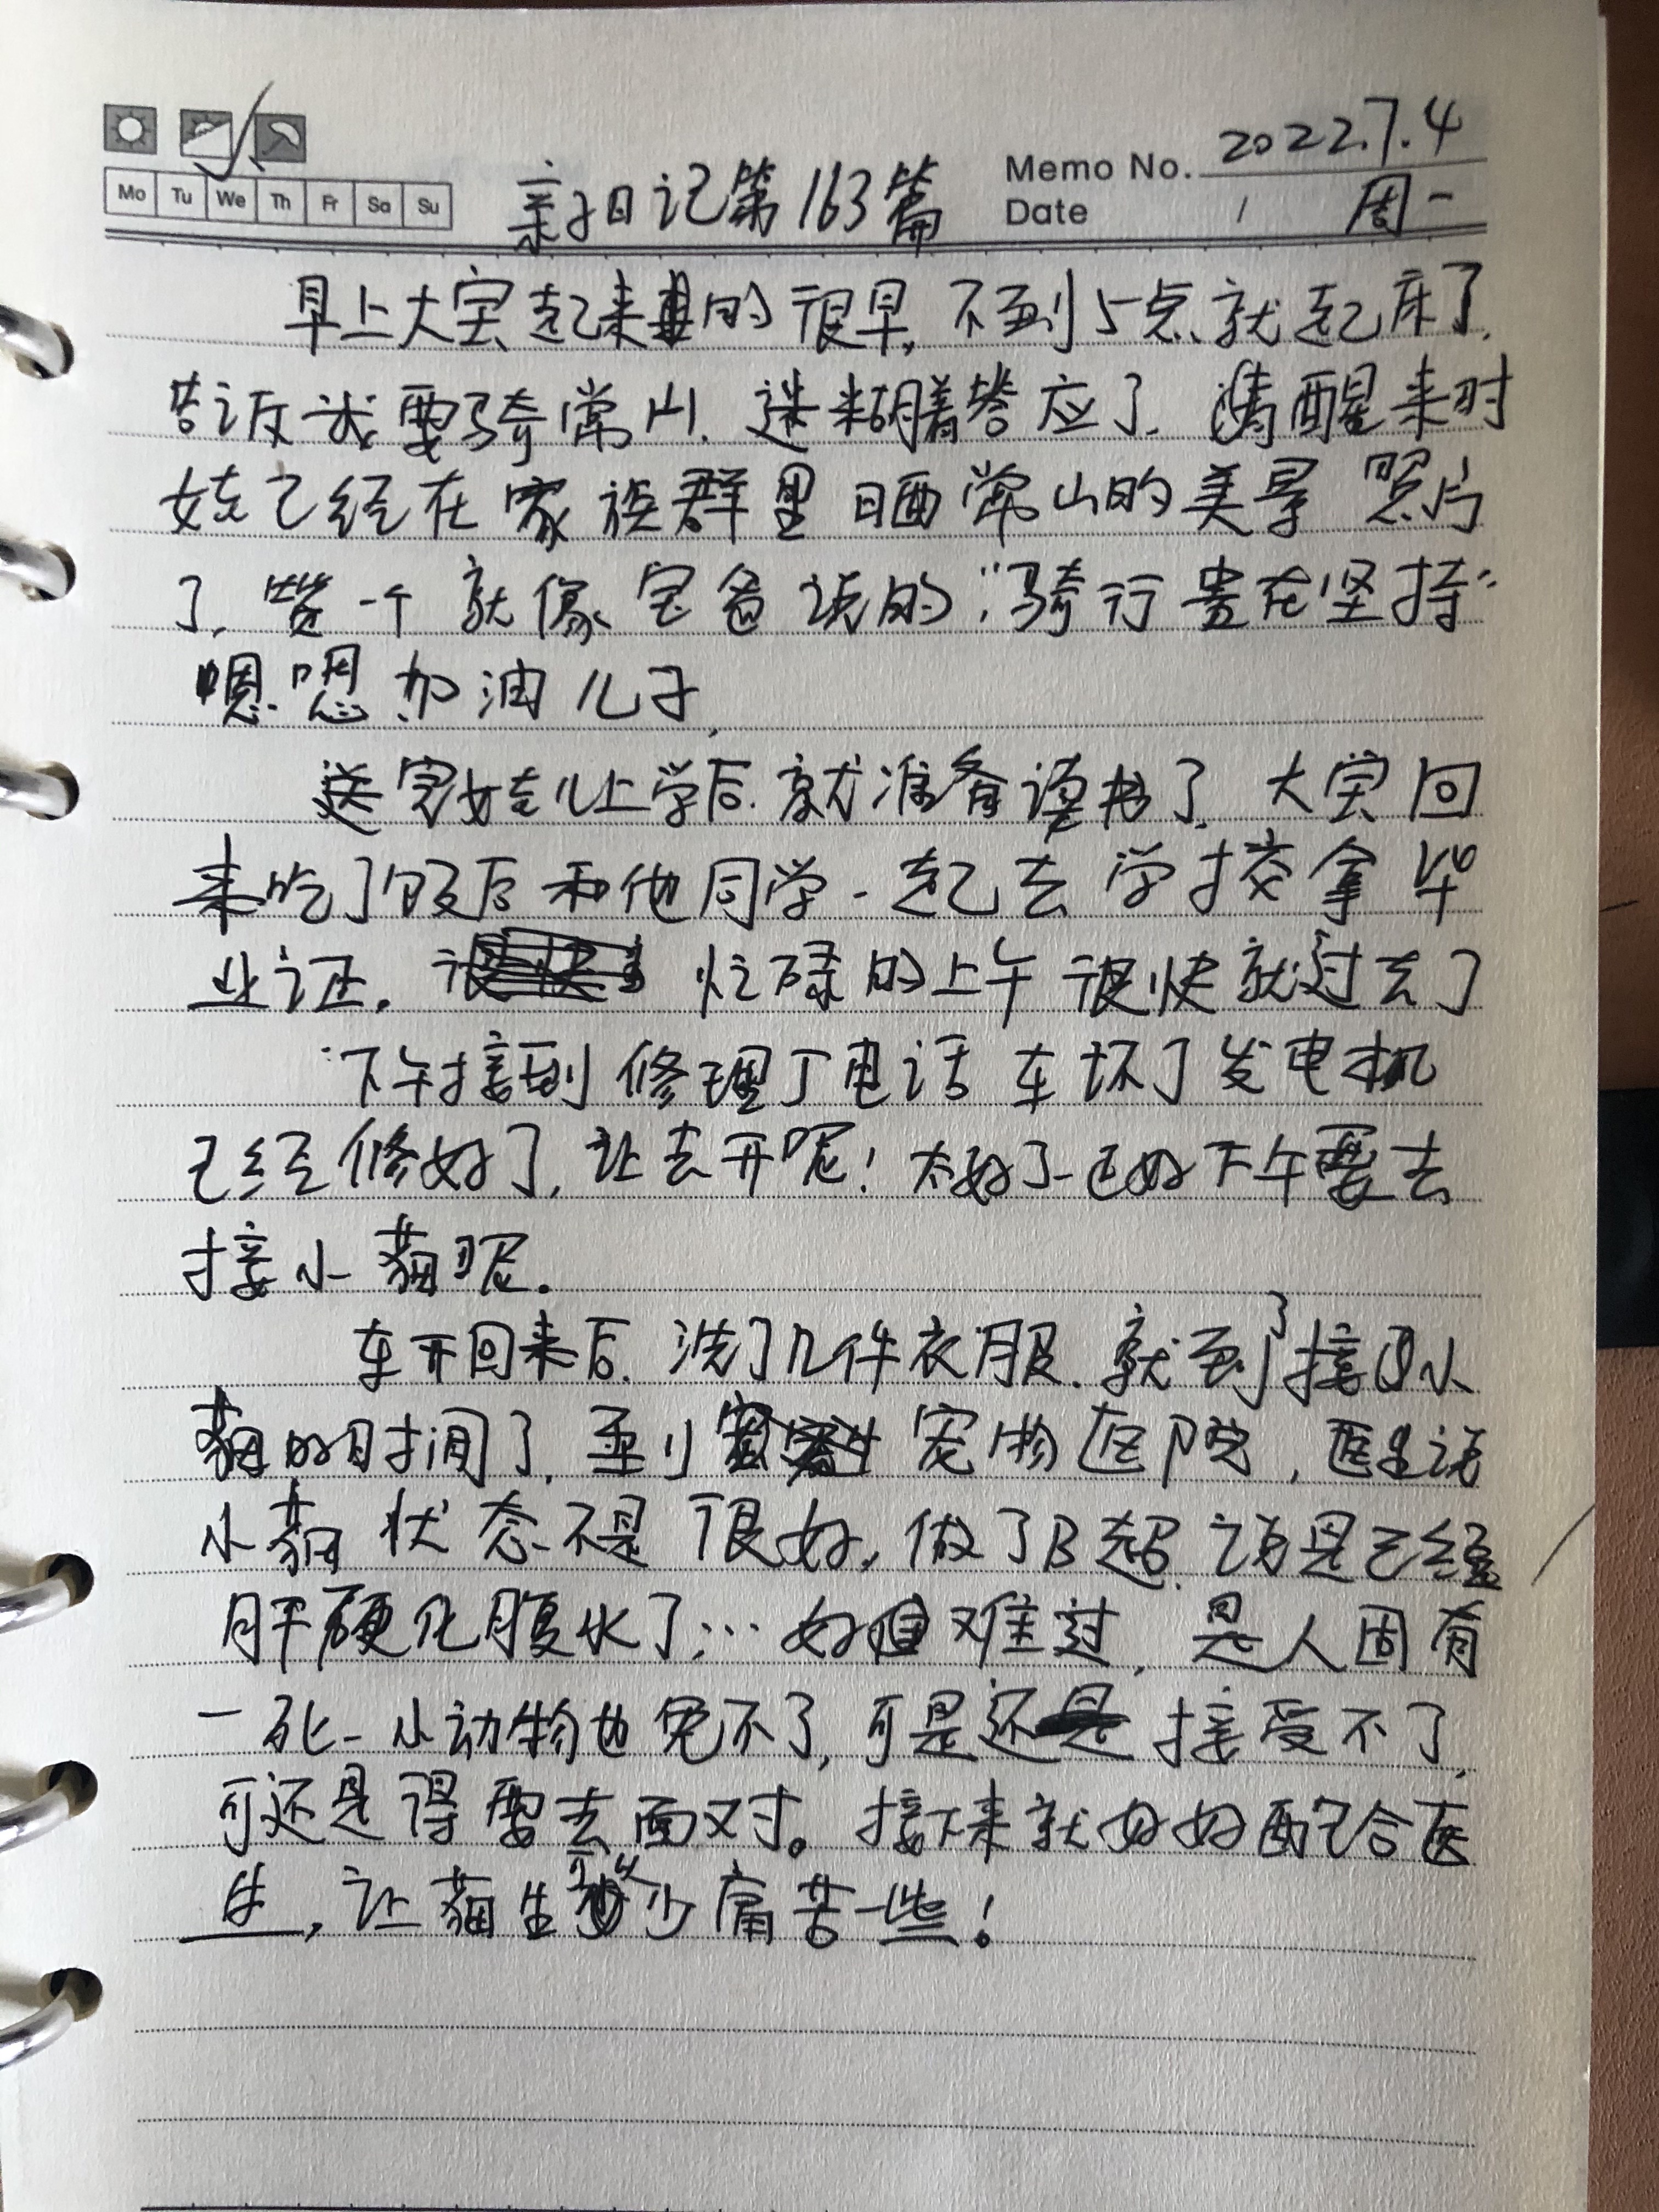 Memo No. 2022.7.4
Mo Tu We Th Fr Sa Su
亲子日记第163篇
Date / 周一
早上大宝起来的很早,不到5点就起床了,
告诉我要骑常山,迷糊着答应了,清醒来时
娃已经在家族群里晒常山的美景照片
了,赞一个 就像宝爸说的:“骑行贵在坚持”
嗯嗯 加油儿子,
送完女娃儿上学后,就准备读书了,大宝回
来吃了饭后和他同学一起去学校拿毕
业证。忙碌的上午很快就过去了
下午接到修理厂电话 车坏了发电机
已经修好了,让去开呢!太好了正好下午要去
接小猫呢。
车开回来后,洗了几件衣服,就到了接回小
猫的时间了,至小宠物医院,医生说
小猫状态不是很好,做了B超,说是已经
肝硬化腹水了,…好难过,是人固有
一死,小动物也免不了,可是还是接受不了,
可还是得要去面对。接下来就好好配合医
生,让猫生少痛苦一些!